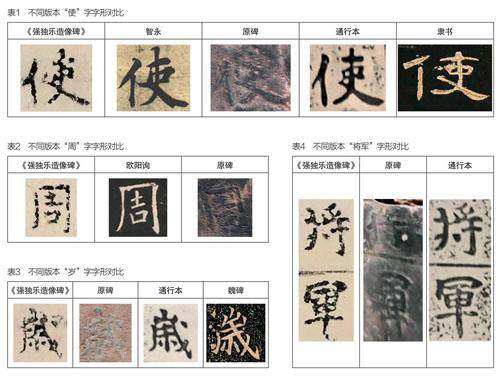 表1 不同版本“使”字字形对比
《强独乐造像碑》 智永 原碑 通行本 隶书
使 使 使 使 使
表2 不同版本“周”字字形对比
《强独乐造像碑》 欧阳询 原碑
周 周 周
表3 不同版本“岁”字字形对比
《强独乐造像碑》 原碑 通行本 魏碑
歲 歲 歲 歲
表4 不同版本“将军”字形对比
《强独乐造像碑》 原碑 通行本
将 将 将
軍 軍 軍